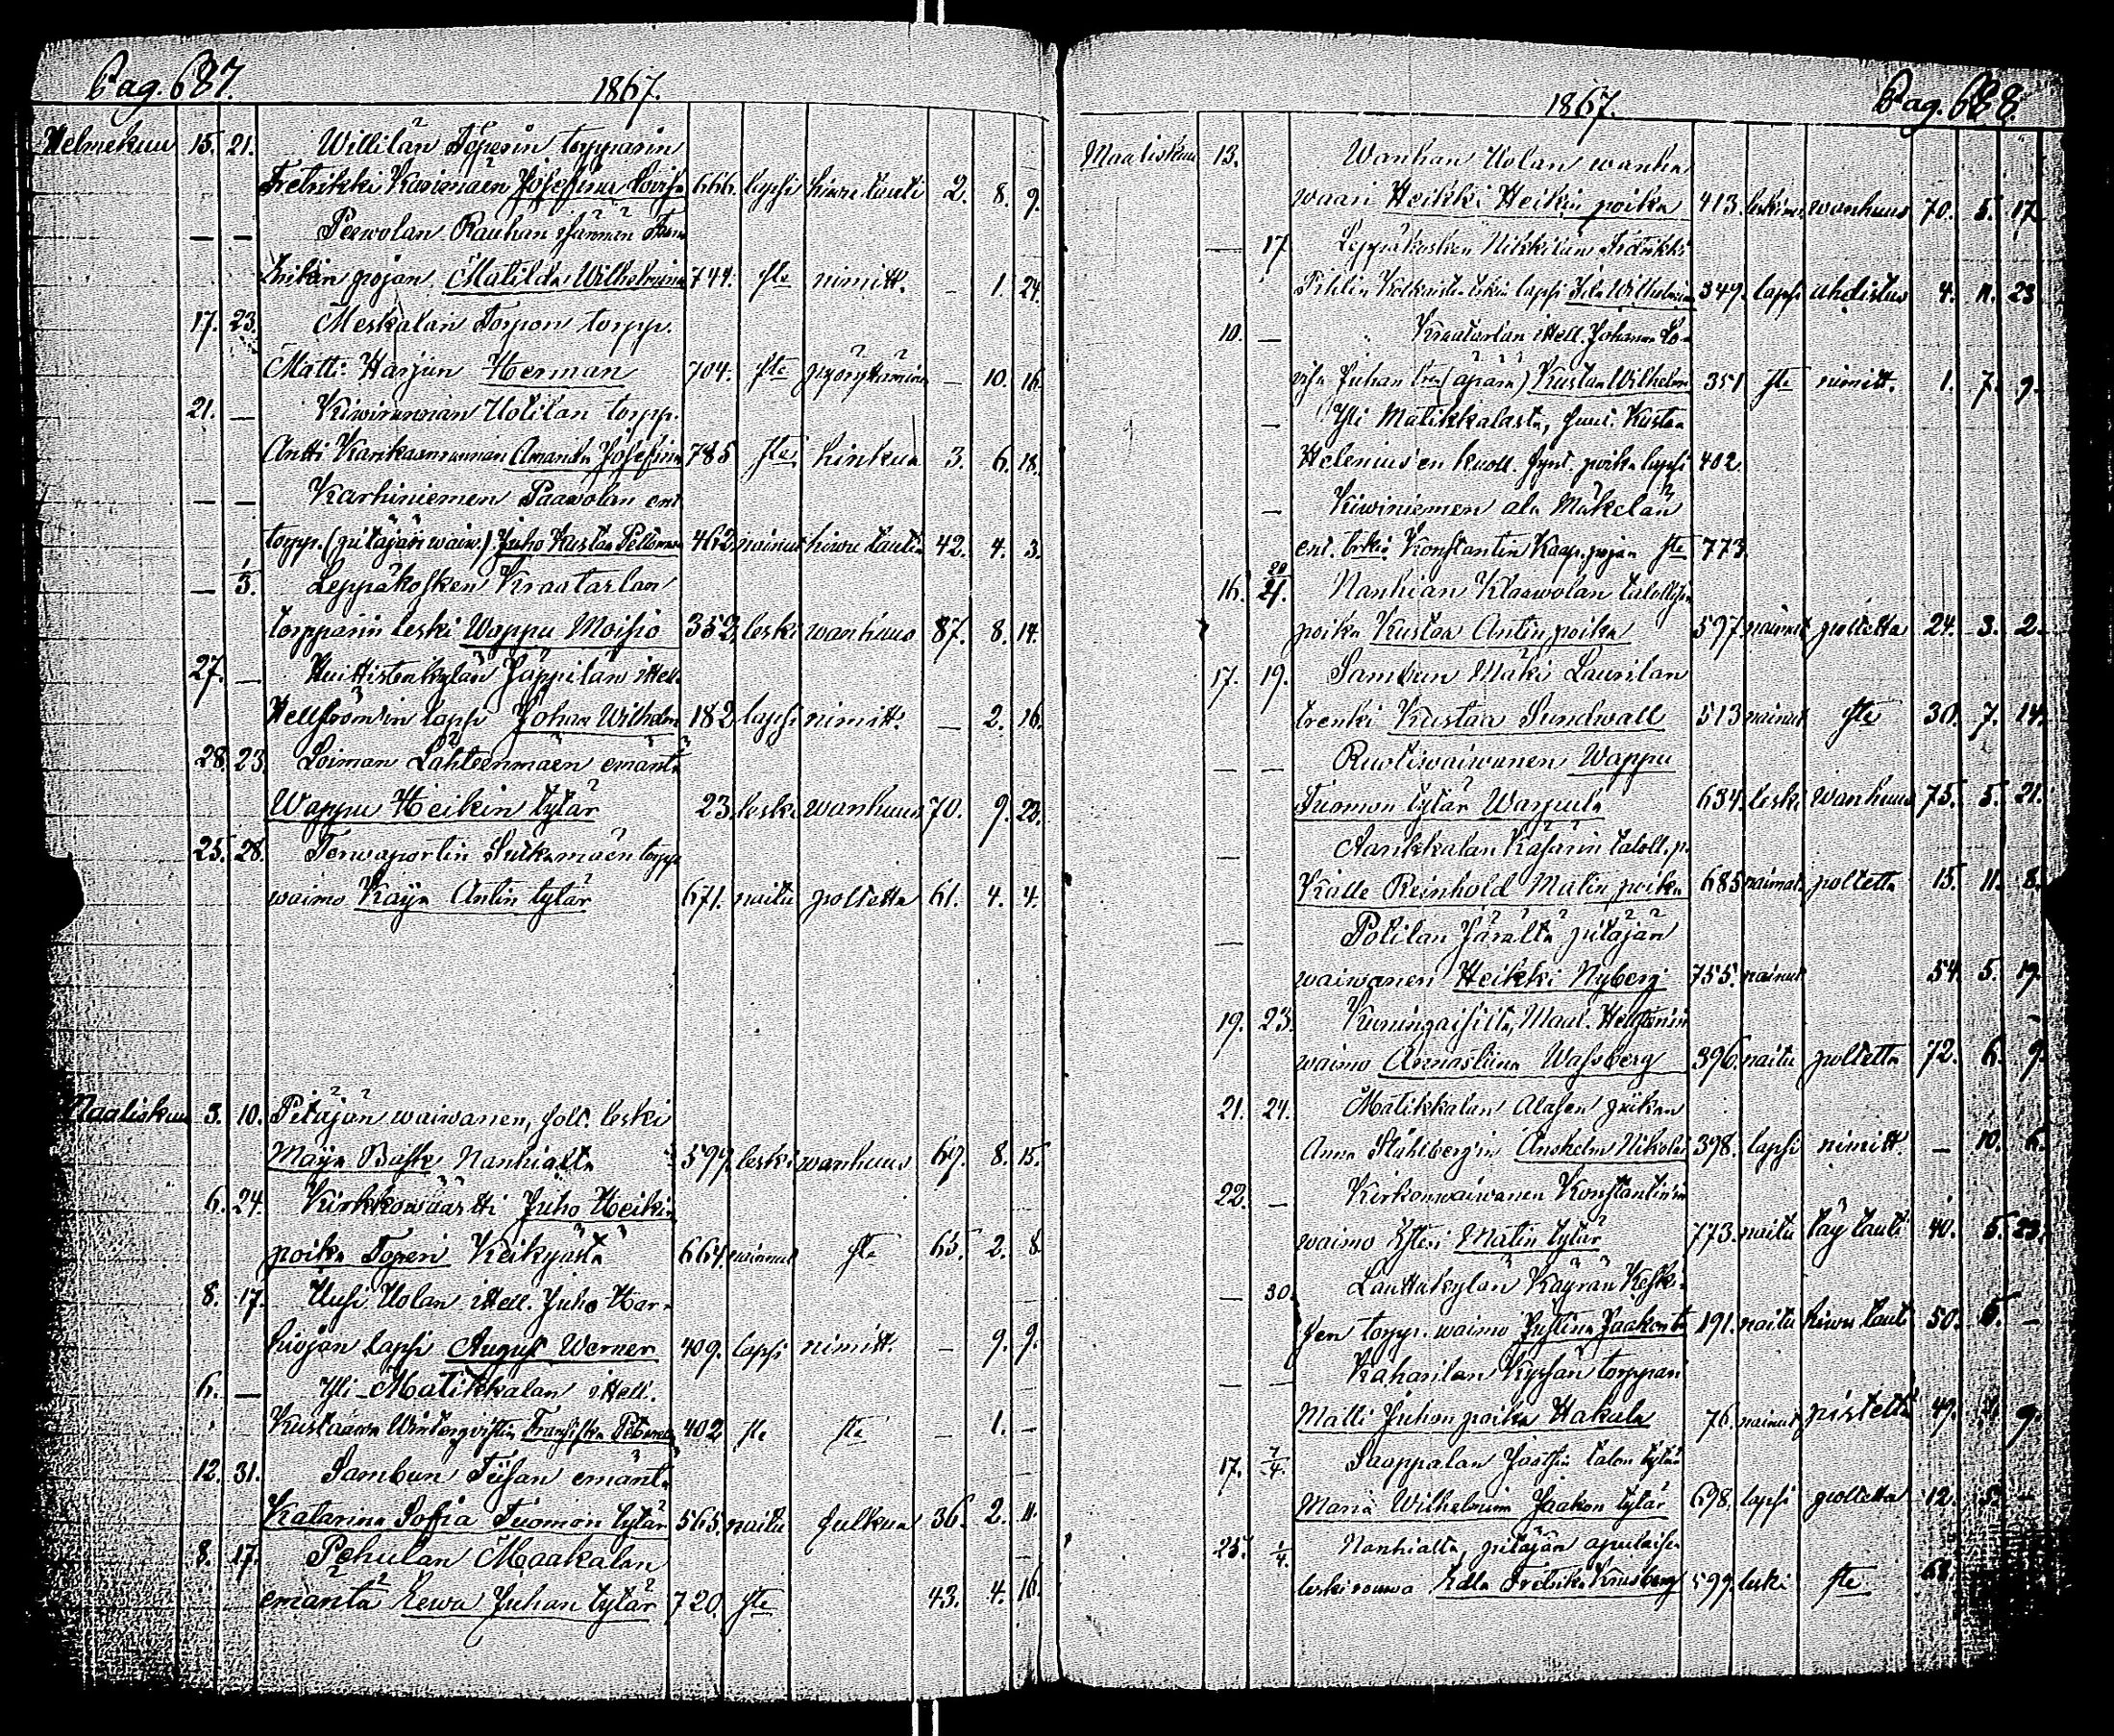 Pag. 687.
1867.
Helmekuu 15. 21. Willilän Töperin torpparin
Fretrikki Karimäen Josefina Lovisa 666. lapsi hiwu tauti 2. 8. 9.
— — Peewolan Rauhan
pojan Matilda Wilhelmina 744. ste nimitt. — 1. 24.
17. 23. Meskalan Torpon torpp.
Matti Harjun Herman 704. ste — 10. 16.
21. — Kiwirannan Uotilan torpp.
Antti Karikaanrannan Amanda Josefina 785 ste hinkua 3. 6. 18.
— — Karhiniemen Paawolan ent
torpp. (pitäjän waiw.) Juho Kustaa 462 nainut hiwu tauti 42. 4. 3.
— 1/3. Leppäkosken Kraatarlan
torpparin leski Wappu Moisio 352. leski wanhuus 87. 8. 14.
27. — Huittistenkylän Jäppilän ittell.
Hellströmin lapsi Johan Wilhelm 182 lapsi nimitt. — 2. 16.
28. 23. Loiman Lähteenmäen emäntä
Wappu Heikin tytär 23. leski wanhuus 70. 9. 22.
25. 28. Terwaportin Sutkamäen torpp
waimo Kaija Antin tytär 671. naitu poltetta 61. 4. 4.
Maaliskuu 3. 10. Pitäjän waiwanen, sold. leski
Maija Bask Nanhialta 597. leski wanhuus 69. 8. 15.
6. 24. Kirkkowäärtti Juho Heikin
poika Toperi Keikyästä 664. nainut ste 65. 2. 8
8. 17. Uusi Uolan ittell. Juho Har-
hiojan lapsi August Werner 409. lapsi nimitt. — 9. 9.
6. — Yli-Matikkalan ittell.
Kustaawa Winterqvistin Fransiska 402 ste ste — 1. —
12. 31. Sambun Tiisan emäntä
Katarina Sofia Tuomon tytär 565. naitu sulkua 36. 2. 11.
8. 17. Pehulan Maakalan
emäntä Eewa Juhan tytär 720. ste 43. 4. 16.
1867.
Pag. 688.
Maaliskuu 13. Wanhan Uolan wanha
waari Heikki Heikin poika 413. leskimies wanhuus 70. 5. 17
— 17. Leppäkosken Nikkilän Fretrikki
lapsi Wilhelmina 349. lapsi ahdistus 4. 11. 23
10. — Kraatarlan ittell. Johanna Lo-
visa Juhan (äpärä) Kustaa Wilhelm 351 ste nimitt. 1. 7. 9.
— Yli Matikkalasta, Kustaa
Helenius'en kuoll. synt. poika lapsi 402.
— Kiwiniemen ala Mäkelän
ent. Konstantin Kaap. pojan ste 773
16. 20/21. Nanhian Klaawolan talollisen
poika Kustaa Antin poika 597. nainut poltetta 24. 3. 2.
17. 19. Sambun Mäki Laurilan
trenki Kustaa Sundwall 513 nainut ste 30. 7. 14.
— — Ruotiwaiwanen Wappu
Tuomon tytär Warpula 634. leski wanhuus 75. 5. 21.
— Aarikkalan Käsärin taloll. p.
Kalle Reinhold Matin poika 685 naimat. poltetta 15. 11. 8.
— Potilan Järältä pitäjän
waiwanen Heikki Nyberg 755. nainut 54. 5. 19.
19. 23. Kuningaisilta, Maal. Hellstenin
waimo Annastiina Wassberg 396. naitu poltetta 72. 6. 9.
21. 24. Matikkalan Alasen piikan
Anna Ståhlberg'in Anshelm Nikolai 398. lapsi nimitt. — 10. 6.
22. — Kirkonwaiwanen Konstantin'in
waimo Esteri Matin tytär 773. naitu täy tauti 40. 5. 23.
— 30. Lauttakylän Käyrän Keski-
sen torpp. waimo Justina Jaakon t. 191. naitu hiwu tauti 50. 5. —
— — Kaharilan Kyssän torppari
Matti Juhon poika Hakala 76. nainut pistettä 49. 9.
17. 7/4. Saappalan talon tytär
Maria Wilhelmiina Jaakon tytär 698. lapsi poltetta 12. 5. —
25. 1/4. Nanhialta, pitäjän apulaisen
leski rouwa Edla Fretrika 599. leski ste 68.